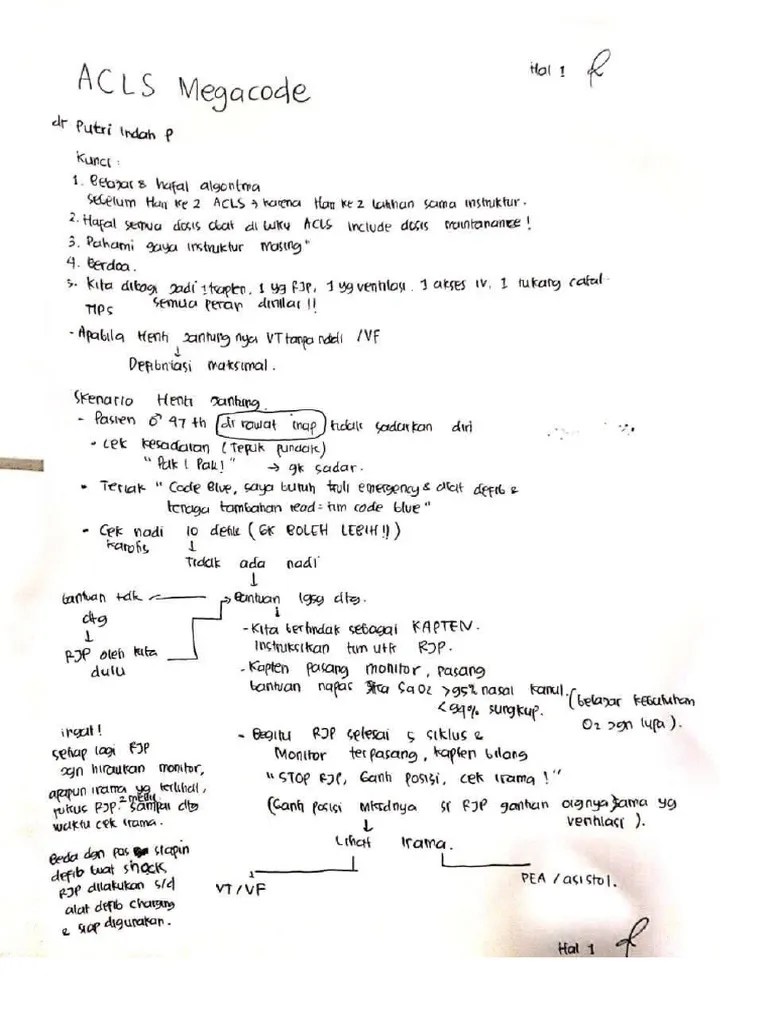 Hal 1
ACLS Megacode
dr Putri Indah P
Kunci :
1. Belajar & hafal algoritma
sebelum Hari ke 2 ACLS → karena Hari ke 2 latihan sama instruktur.
2. Hafal semua dosis obat di buku ACLS include dosis maintanance!
3. Pahami gaya instruktur masing"
4. Berdoa.
5. Kita dibagi jadi 1 kapten, 1 yg RJP, 1 yg ventilasi, 1 akses IV, 1 tukang catat
TIPS semua peran dinilai!!
- Apabila Henti jantung nya VT tanpa nadi /VF
↓
Defibrilasi maksimal.
Skenario Henti Jantung
- Pasien ♂ 47 th di rawat inap tidak sadarkan diri
• Cek kesadaran (Tepuk pundak)
"Pak! Pak!" → gk sadar.
• Teriak "Code Blue, saya butuh troli emergency & alat defib &
tenaga tambahan read = tim code blue"
- Cek nadi 10 detik (GK BOLEH LEBIH!!)
karotis ↓
Tidak ada nadi
↓
bantuan tdk ← → Bantuan lgsg dtg.
dtg
↓
RJP oleh kita
dulu
↓
- Kita bertindak sebagai KAPTEN.
Instruksikan tim utk RJP.
- Kapten pasang monitor, pasang
bantuan napas jika SaO2 >95% nasal kanul.
<94% sungkup.
(belajar kebutuhan
O2 jgn lupa).
ingat!
setiap lagi RJP
jgn hiraukan monitor,
apapun irama yg terlihat,
fokus RJP 2 menit sampai dtg
waktu cek irama.
Beda dgn pas siapin
defib buat shock,
RJP dilakukan s/d
alat defib charging
& siap digunakan.
- Begitu RJP selesai 5 siklus &
Monitor terpasang, kapten bilang
"STOP RJP, Ganti posisi, cek irama!"
(Ganti posisi maksdnya si RJP gantian orgnya sama yg
ventilasi).
↓
Lihat irama.
VT/VF
PEA / asistol.
Hal 1